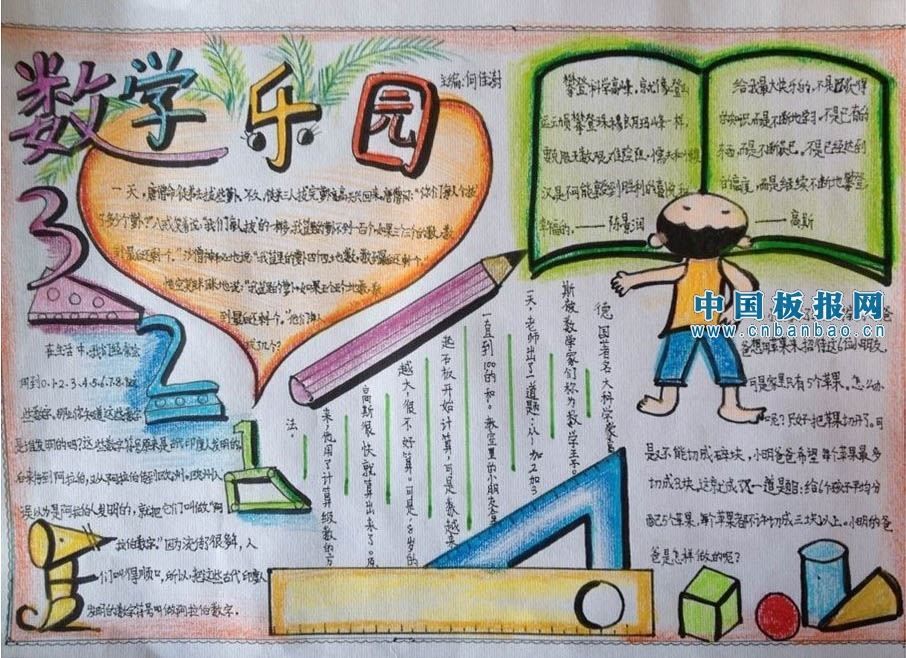 数学乐园
主编:何佳澍
一天,唐僧命徒弟去找些萝卜。不久,徒弟三人拔完萝卜高兴回来,唐僧问:“你们每人拔
了多少个萝卜?”八戒笑着说:“我们每人拔的一样多,我筐里的萝卜不到一百个,如果三个三个的数,数
到最后还剩1个。”沙僧神秘地说:“我筐里的萝卜四个四个地数,数到最后还剩1个。”
到最后还剩1个。”他们每人
拔了几个?
攀登科学高峰,就像登山
运动员攀登珠穆朗玛峰一样,
要克服无数艰难险阻,懦夫和懒
汉是不可能享受到胜利的喜悦和
幸福的。——陈景润
给我最大快乐的,不是已获得
的知识,而是不断的学习,不是已有的
东西,而是不断的获取。不是已经达到
的高度,而是继续不断地攀登。
——高斯
3
2
1
在生活中,我们经常会
用到0.1.2.3.4.5.6.7.8.9这
些数字,那么你知道这些数字
是谁发明的吗?这些数字符号原来是古代印度人发明的,
后来传到阿拉伯,又从阿拉伯传到欧洲。欧洲人
误以为是阿拉伯人发明的,就把它们叫做“阿
拉伯数字。”因为流传了很多年,人
们叫得顺口,所以,把这些古代印度人
发明的数字符号叫做阿拉伯数字。
德国著名大科学家高
斯被数学家们称为数学王子。
一天,老师出了一道题:从1加2加3
一直到100的和。教室里的小朋友
起石板开始计算,可是数越来
越大,很不好算。可是,8岁的
高斯很快就算出来了。原
来,他用了计算级数的方
法。
爸想用苹果来招待这6位小朋友。
可是家里只有5个苹果。怎么办
呢?只好把苹果切开了。可
是又不能切成碎块,小明爸爸希望每个苹果最多
切成3块。这就成了又一道题目:给6个孩子平均分
配5个苹果,每个苹果都不许切成三块以上。小明的爸
爸是怎样做的呢?
中国板报网
www.cnbanbao.cn